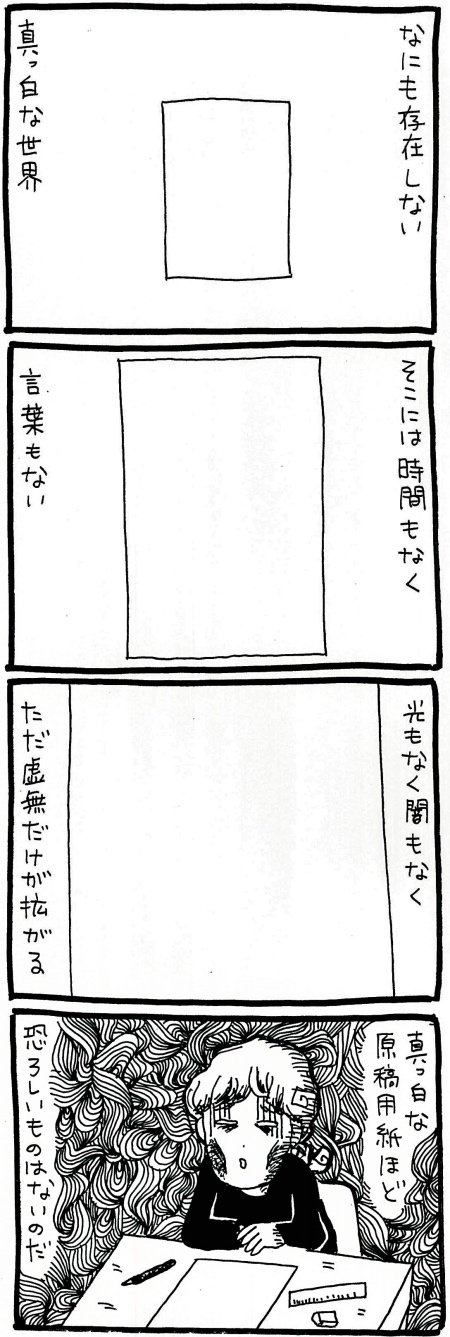 なにも存在しない
真っ白な世界
そこには時間もなく
言葉もない
光もなく闇もなく
ただ虚無だけが拡がる
真っ白な
原稿用紙ほど
恐ろしいものはないのだ